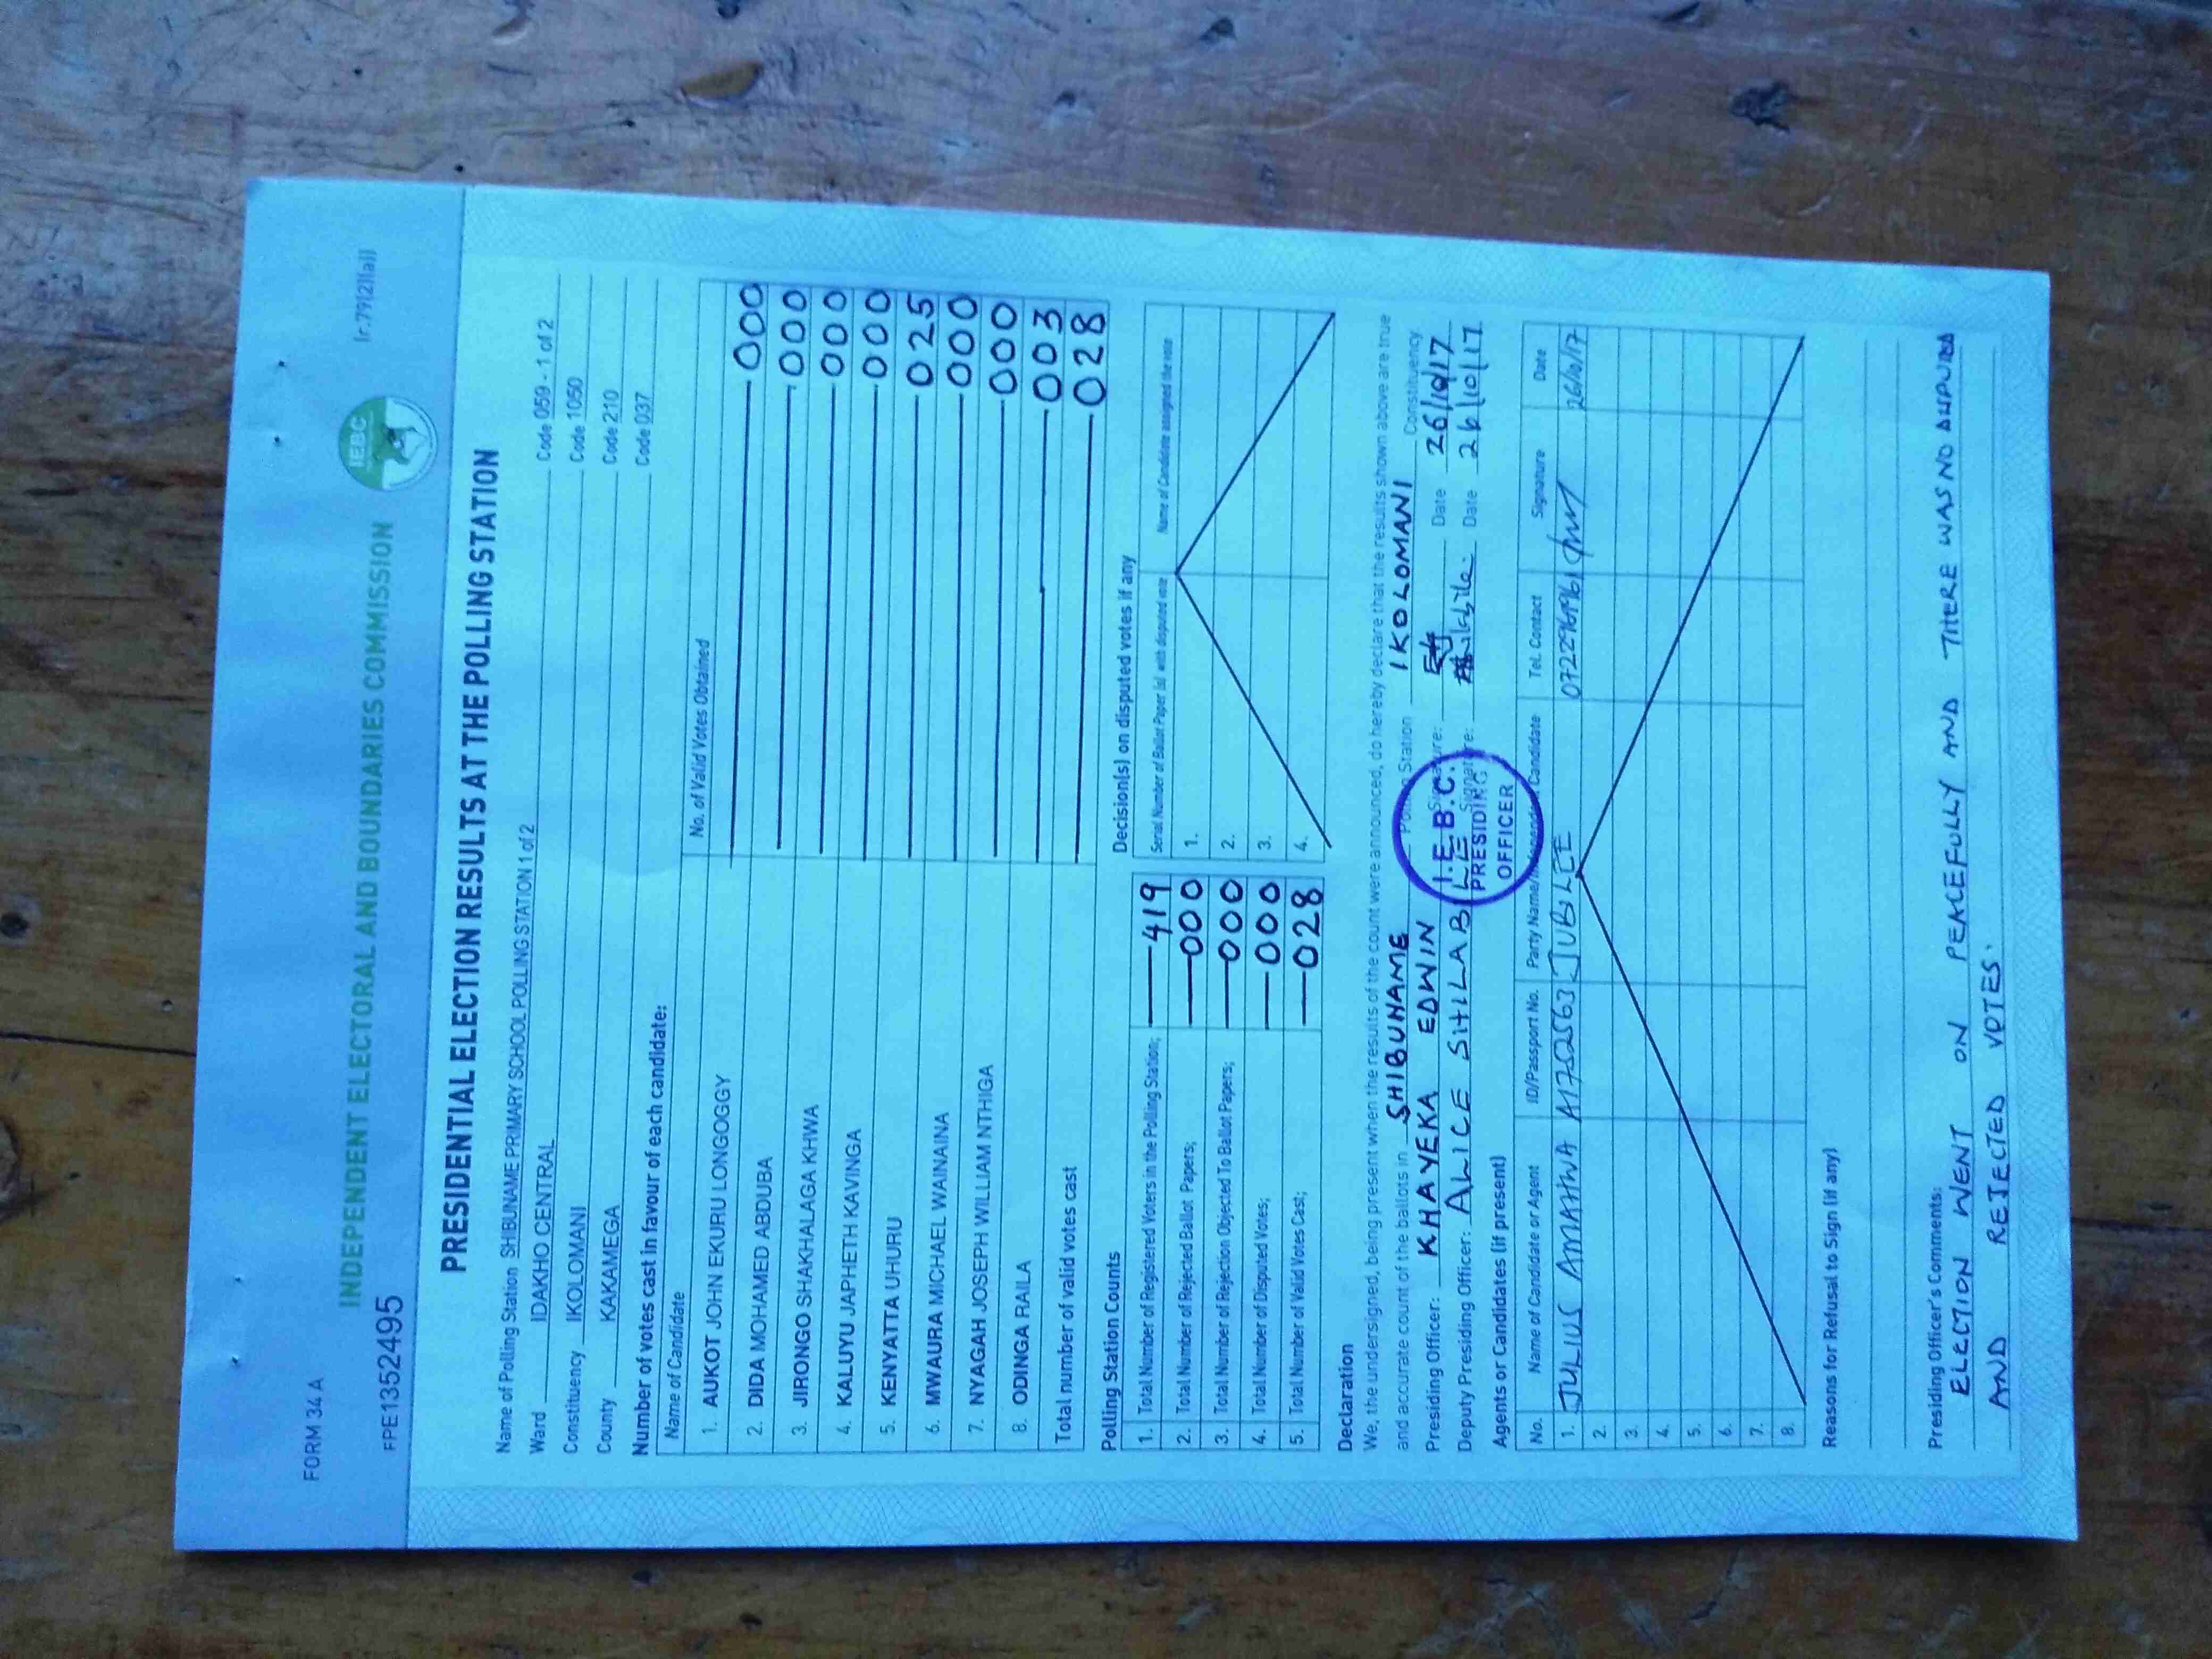 FORM 34 A
(r.79(2)(a))
INDEPENDENT ELECTORAL AND BOUNDARIES COMMISSION
IEBC
FPE1352495
PRESIDENTIAL ELECTION RESULTS AT THE POLLING STATION
Name of Polling Station SHIBUNAME PRIMARY SCHOOL POLLING STATION 1 of 2 Code 059 - 1 of 2
Ward IDAKHO CENTRAL Code 1050
Constituency IKOLOMANI Code 210
County KAKAMEGA Code 037
Number of votes cast in favour of each candidate:
Name of Candidate No. of Valid Votes Obtained
1. AUKOT JOHN EKURU LONGOGGY 000
2. DIDA MOHAMED ABDUBA 000
3. JIRONGO SHAKHALAGA KHWA 000
4. KALUYU JAPHETH KAVINGA 000
5. KENYATTA UHURU 025
6. MWAURA MICHAEL WAINAINA 000
7. NYAGAH JOSEPH WILLIAM NTHIGA 000
8. ODINGA RAILA 003
Total number of valid votes cast 028
Polling Station Counts
1. Total Number of Registered Voters in the Polling Station; 419
2. Total Number of Rejected Ballot Papers; 000
3. Total Number of Rejection Objected To Ballot Papers; 000
4. Total Number of Disputed Votes; 000
5. Total Number of Valid Votes Cast; 028
Decision(s) on disputed votes if any
Serial Number of Ballot Paper (s) with disputed vote Name of Candidate assigned the vote
1.
2.
3.
4.
Declaration
We, the undersigned, being present when the results of the count were announced, do hereby declare that the results shown above are true
and accurate count of the ballots in SHIBUNAME Polling Station IKOLOMANI Constituency
Presiding Officer: KHAYEKA EDWIN Signature: Date 26/10/17
Deputy Presiding Officer: ALICE SHILLABILLE Signature: Date 26/10/17
I.E.B.C.
PRESIDING
OFFICER
Agents or Candidates (if present)
No. Name of Candidate or Agent ID/Passport No. Party Name/Independent Candidate Tel. Contact Signature Date
1. JULIUS AMATHA A1752563 JUBILEE 26/10/17
2.
3.
4.
5.
6.
7.
8.
Reasons for Refusal to Sign (if any)
Presiding Officer's Comments:
ELECTION WENT ON PEACEFULLY AND THERE WAS NO DISPUTED
AND REJECTED VOTES.